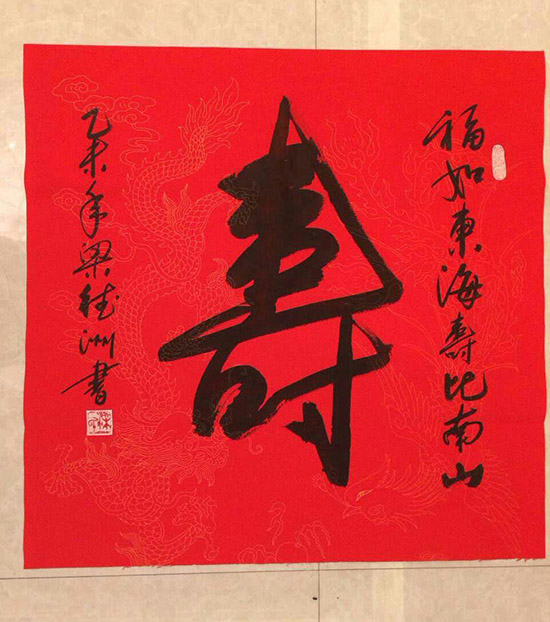 福如東海壽比南山
壽
乙未年梁德洲書